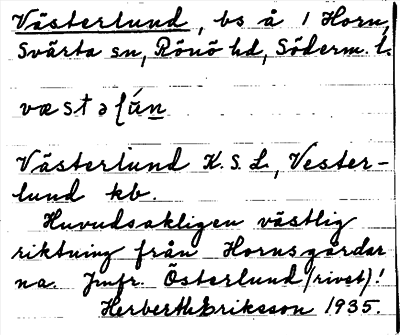 Västerlund, bs å 1 Horn,
Svärta sn, Rönö hd, Söderm. l.
væstəḷún
Västerlund K.S.L., Vester-
lund kb.
Huvudsakligen västlig
riktning från Hornsgårdar
na. Jmfr. Österlund (rivet)!
Herberth Eriksson 1935.